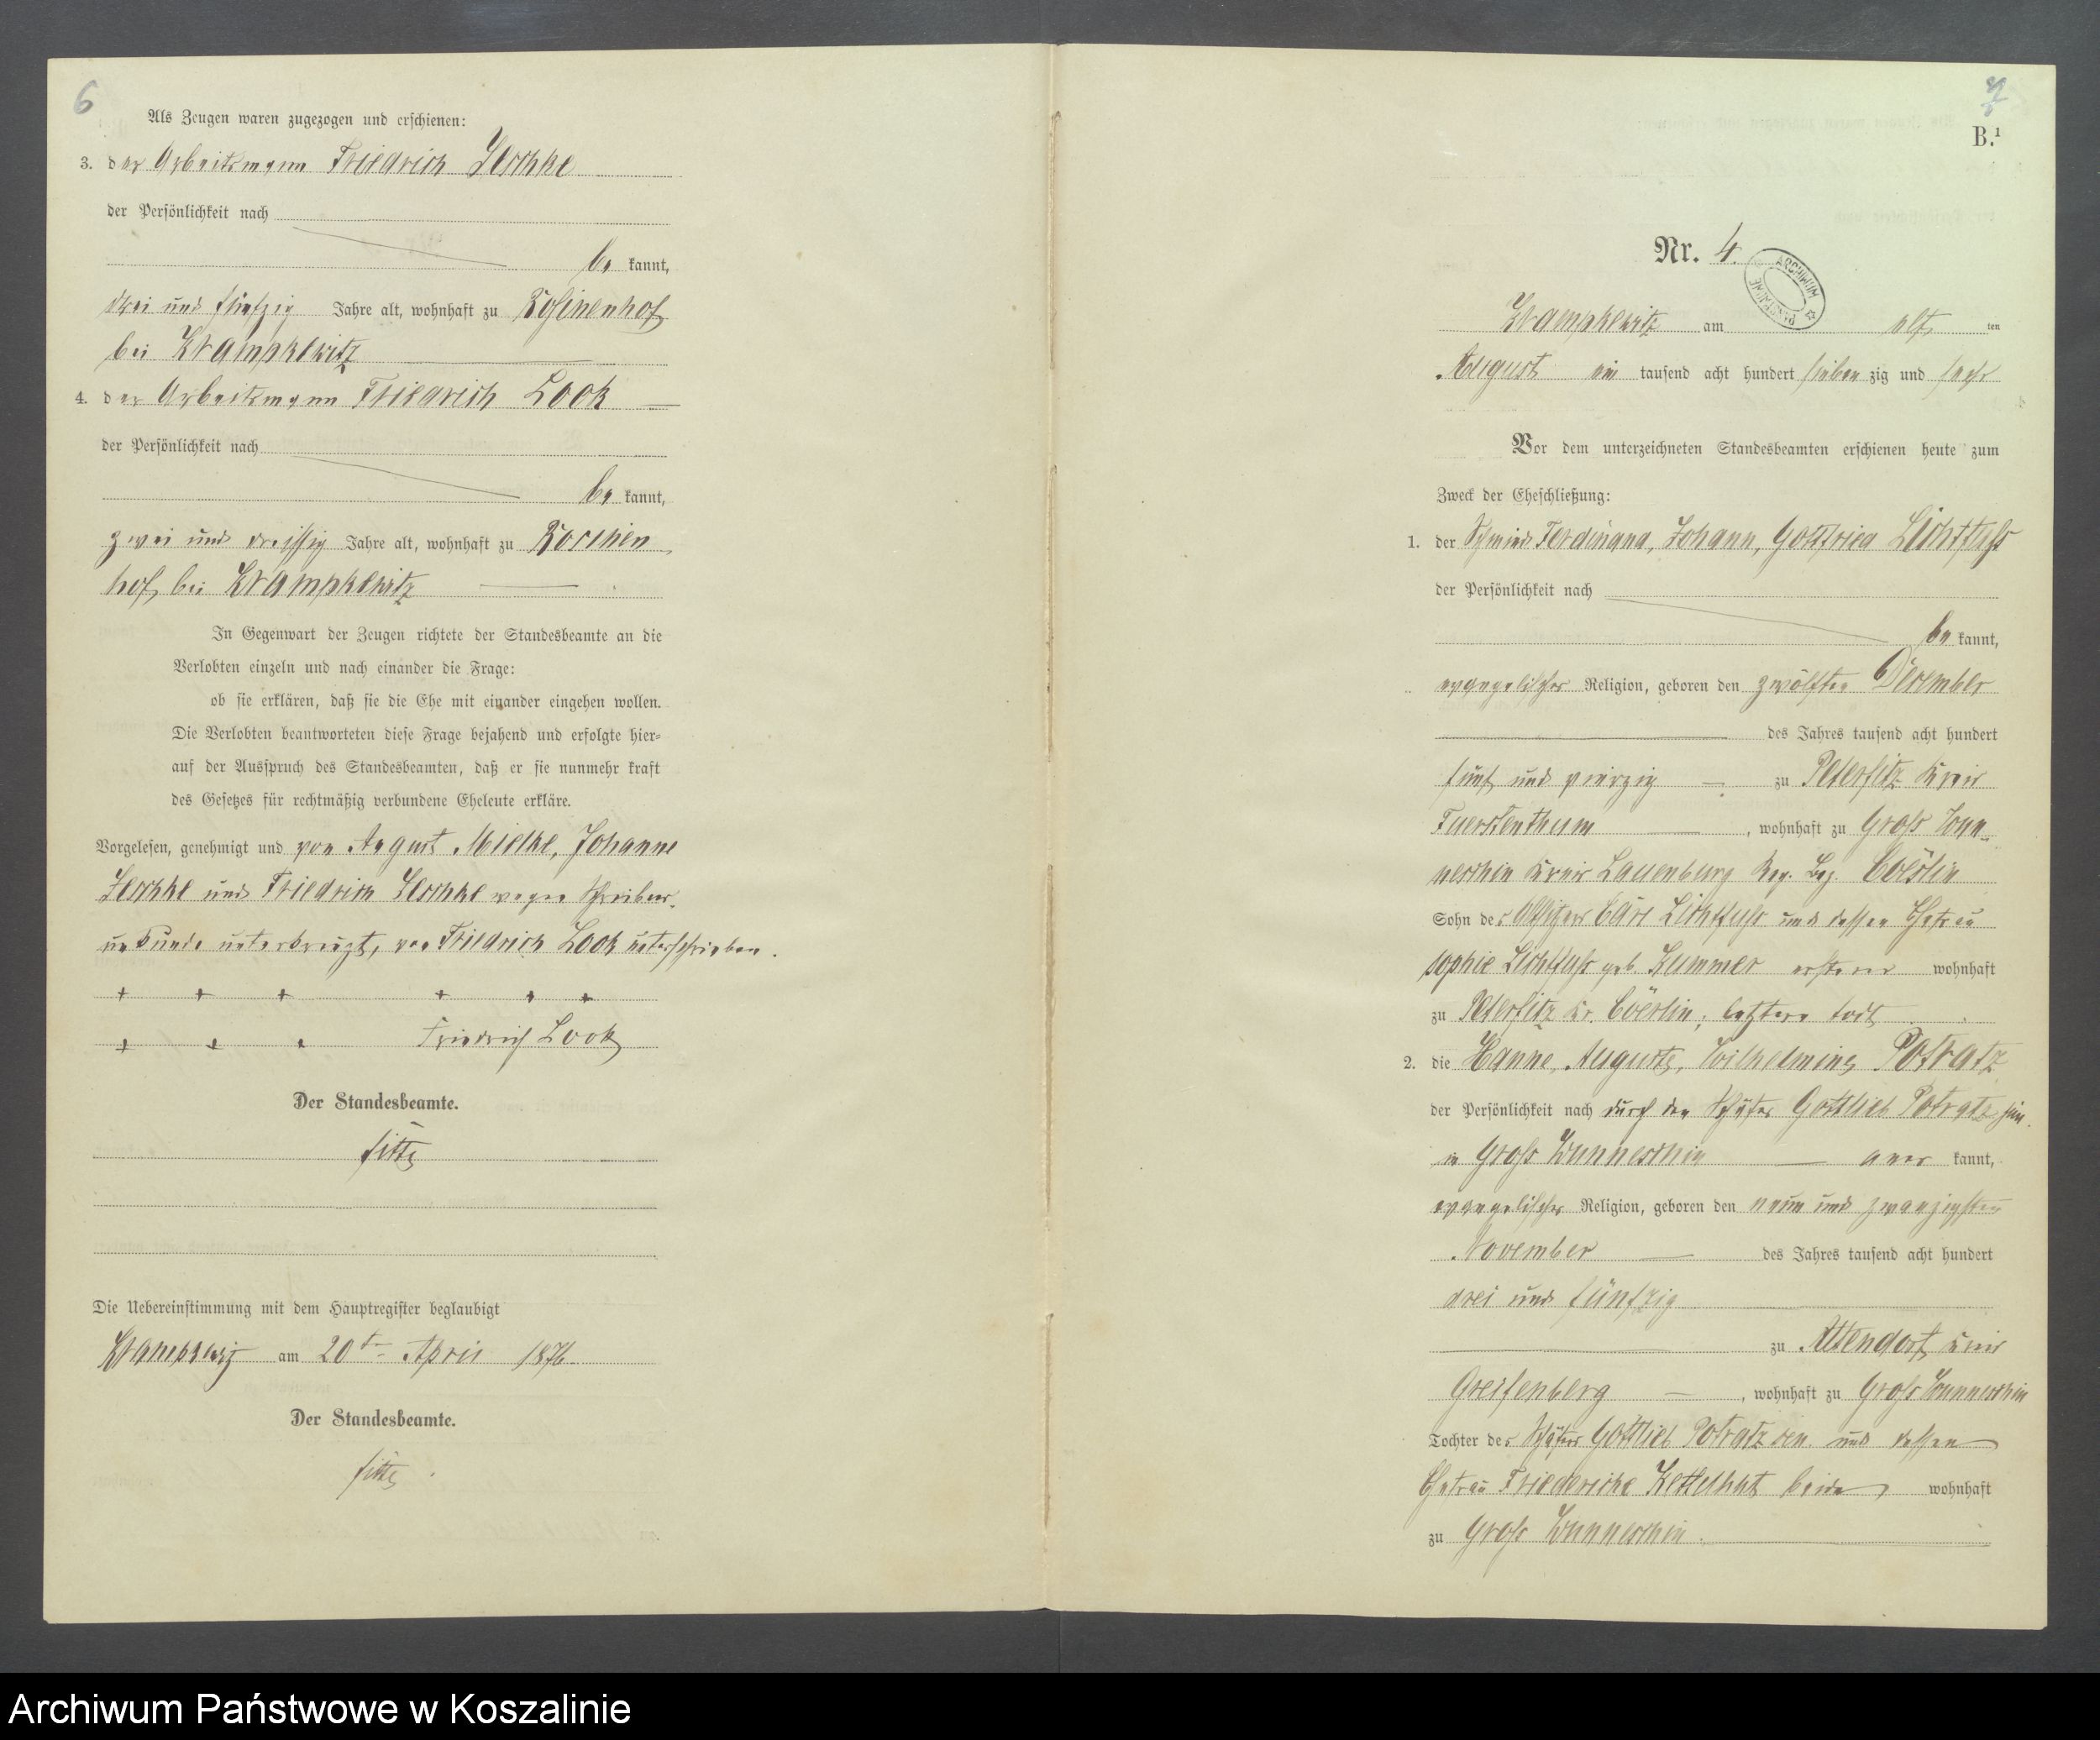 6
Als Zeugen waren zugezogen und erschienen:
3. der Arbeitsmann Friedrich Jeschke
der Persönlichkeit nach
be kannt,
drei und fünfzig Jahre alt, wohnhaft zu Rosinenhof
bei Krampkewitz
4. der Arbeitsmann Friedrich Look
der Persönlichkeit nach
be kannt,
zwei und dreissig Jahre alt, wohnhaft zu
hof, bei Krampkewitz
In Gegenwart der Zeugen richtete der Standesbeamte an die
Verlobten einzeln und nach einander die Frage:
ob sie erklären, daß sie die Ehe mit einander eingehen wollen.
Die Verlobten beantworteten diese Frage bejahend und erfolgte hier=
auf der Ausspruch des Standesbeamten, daß er sie nunmehr kraft
des Gesetzes für rechtmäßig verbundene Eheleute erkläre.
Vorgelesen, genehmigt und von August Mielke, Johanne
Jeschke und Friedrich Jeschke wegen Schreibens-
unkunde unterkreuzt, von Friedrich Look unterschrieben.
+ + + + + +
+ + + Friedrich Look
Der Standesbeamte.
Die Uebereinstimmung mit dem Hauptregister beglaubigt
Krampkewitz am 20ten April 1876
Der Standesbeamte.
B.¹
Nr. 4.
ARCHIWUM PAŃSTWOWE
Krampkewitz am elf ten
August ein tausend acht hundert sieben zig und sechs
Vor dem unterzeichneten Standesbeamten erschienen heute zum
Zweck der Eheschließung:
1. der Schmied Ferdinand, Johann, Gottfried Lichtfuss
der Persönlichkeit nach
be kannt,
evangelischer Religion, geboren den zwölften December
des Jahres tausend acht hundert
fünf und vierzig zu Peterfitz Kreis
Fuerstenthum, wohnhaft zu Gross Wun-
neschin Kreis Lauenburg Reg. Bez. Cöslin
Sohn des Altsitzers Carl Lichtfuss und dessen Ehefrau
Sophie Lichtfuss geb. Kummer ersterer wohnhaft
zu Peterfitz Kr. Cörlin; letztere todt
2. die Hanne, Auguste, Wilhelmine Potratz
der Persönlichkeit nach durch den Schäfer Gottlieb Potratz
in Gross Wunneschin aner kannt,
evangelischer Religion, geboren den neun und zwanzigsten
November des Jahres tausend acht hundert
drei und fünfzig
zu Altendorf Kreis
Greifenberg, wohnhaft zu Gross Wunneschin
Tochter des Schäfers Gottlieb Potratz sen. und dessen
Ehefrau Friedericke Kettelhut beide wohnhaft
zu Gross Wunneschin.
Archiwum Państwowe w Koszalinie